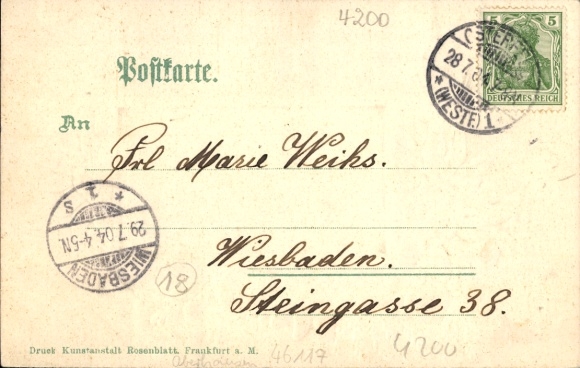 4200
5
DEUTSCHES REICH
28.7.04
* (WESTF.) 1
Postkarte.
An
Frl Marie Weihs.
* 1 s
29.7.04. 4-5N.
WIESBADEN
Wiesbaden.
18
Steingasse 38.
Druck Kunstanstalt Rosenblatt. Frankfurt a. M.
46117
4200